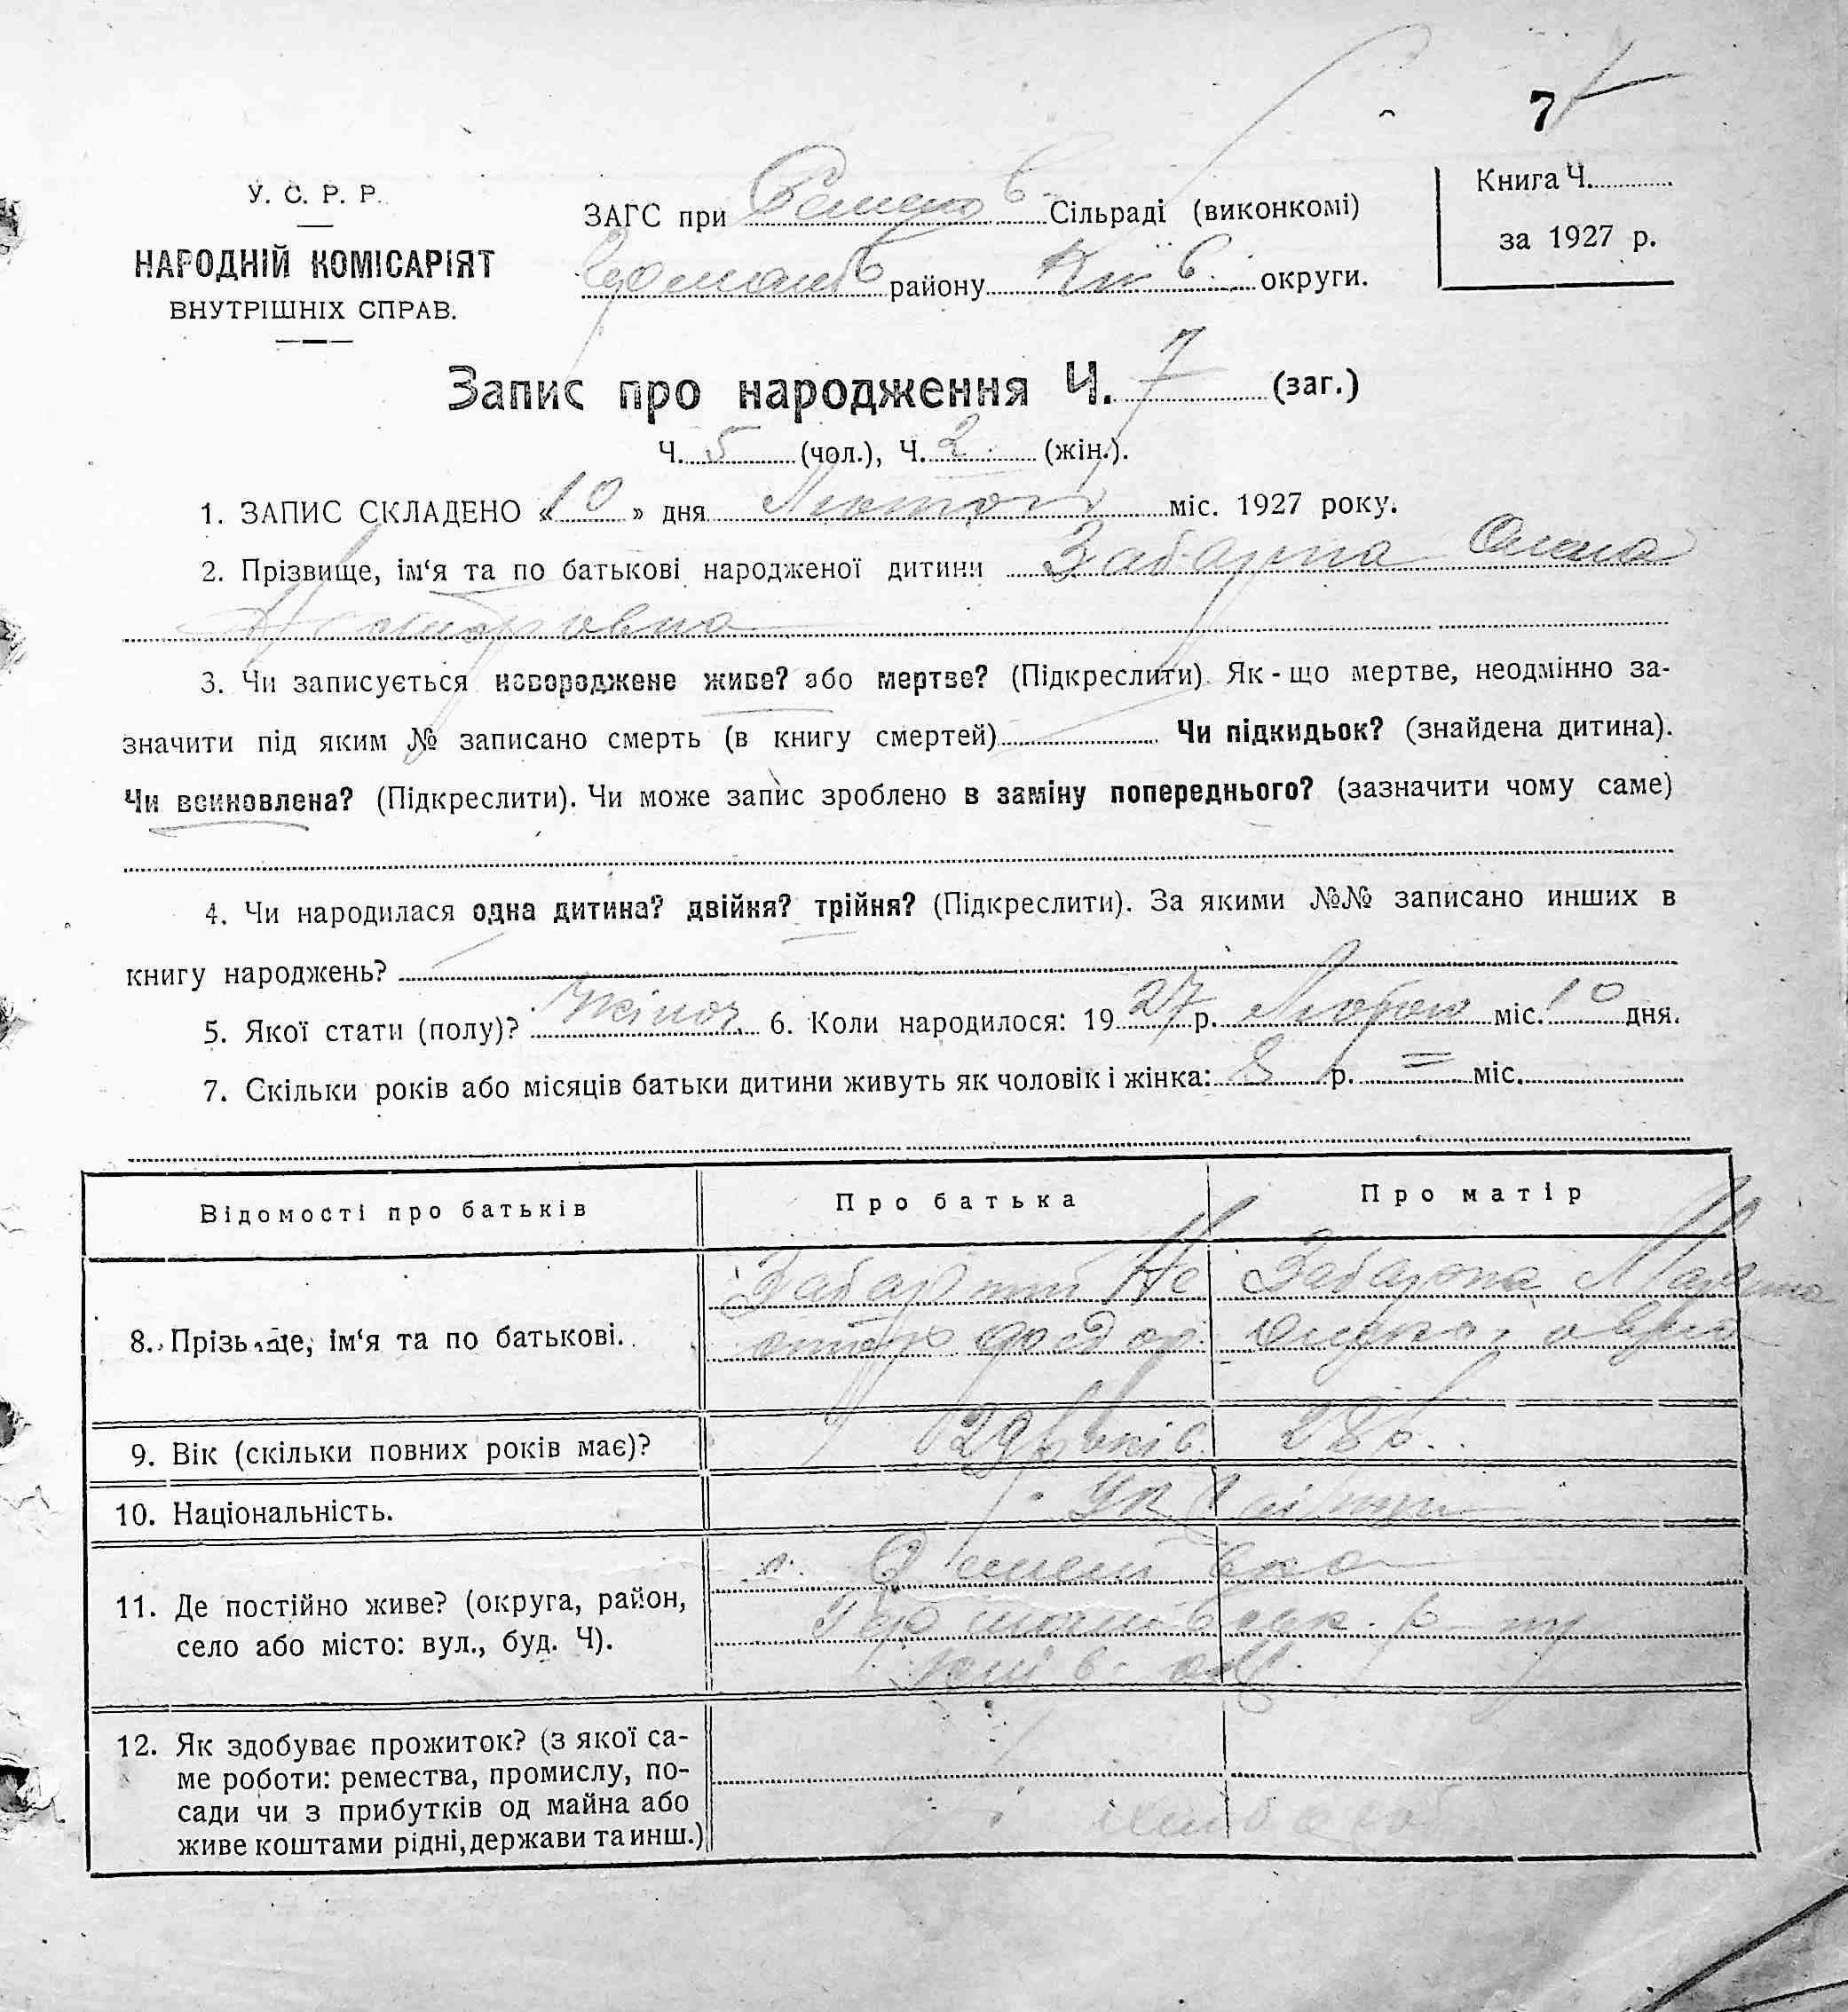 7
У. С. Р. Р.
НАРОДНІЙ КОМІСАРІЯТ
ВНУТРІШНІХ СПРАВ.
ЗАГС при Семенов Сільраді (виконкомі)
району Київ. округи.
Книга Ч.
за 1927 р.
Запис про народження Ч. 7 (заг.)
Ч. 5 (чол.), Ч. 2 (жін.).
1. ЗАПИС СКЛАДЕНО «10» дня Лютого міс. 1927 року.
2. Прізвище, ім‘я та по батькові народженої дитини Забарна Олена
Несторовна
3. Чи записується новороджене живе? або мертве? (Підкреслити). Як-що мертве, неодмінно за-
значити під яким № записано смерть (в книгу смертей) Чи підкидьок? (знайдена дитина).
Чи всиновлена? (Підкреслити). Чи може запис зроблено в заміну попереднього? (зазначити чому саме)
4. Чи народилася одна дитина? двійня? трійня? (Підкреслити). За якими №№ записано инших в
книгу народжень?
5. Якої стати (полу)? жіноч. 6. Коли народилося: 1927 р. Лютого міс. 10 дня.
7. Скільки років або місяців батьки дитини живуть як чоловік і жінка: 8 р. = міс.
Відомості про батьків Про батька Про матір
8. Прізвище, ім‘я та по батькові. Забарний Не Забарна
стор
9. Вік (скільки повних років має)? 29 років. 28 р.
10. Національність. Українці
11. Де постійно живе? (округа, район,
село або місто: вул., буд. Ч).
с. Семенівка
р-ну
Київ. окр.
12. Як здобуває прожиток? (з якої са-
ме роботи: ремества, промислу, по-
сади чи з прибутків од майна або
живе коштами рідні, держави та инш.)